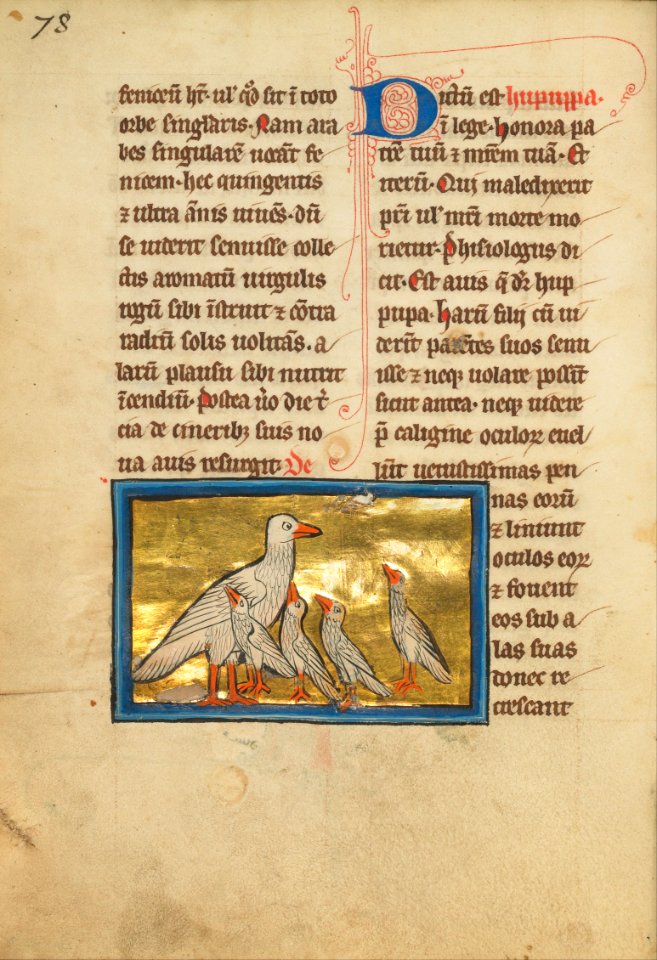 78
feniceū hr̄· ul' qd̄ sit ī toto
orbe singl'aris· Nam ara
bes singularē uocāt fe
nicem· hec quingentis
⁊ ultra ānis uiuēs· dū
se uiderit senuisse colle
ctis aromatū uirgulis
rogū sibi īstruit ⁊ cōtra
radiū solis uolitās. a
larū plausu sibi nutrit
īcendiū· postea ūo die t̄
cia de cineribꝫ suis no
ua auis resurgit· De
Dictū est hupuppa·
ī lege· Honora pa
trē tuū ⁊ mr̄em tuā· Et
iterū· Qui maledixerit
pr̄i ul' mr̄i morte mo
rietur· Phisiologus di
cit· Est auis q̄ dr̄ hup
pupa· Harū filij cū ui
derīt parētes suos senu
isse ⁊ neqꝫ uolare possīt
sicut antea· neqꝫ uidere
p̄ caligine oculoꝝ euel
lūt uetustissimas pen
nas eorū
⁊ liniunt
oculos eoꝝ
⁊ fouent
eos sub a
las suas
donec re
crescant